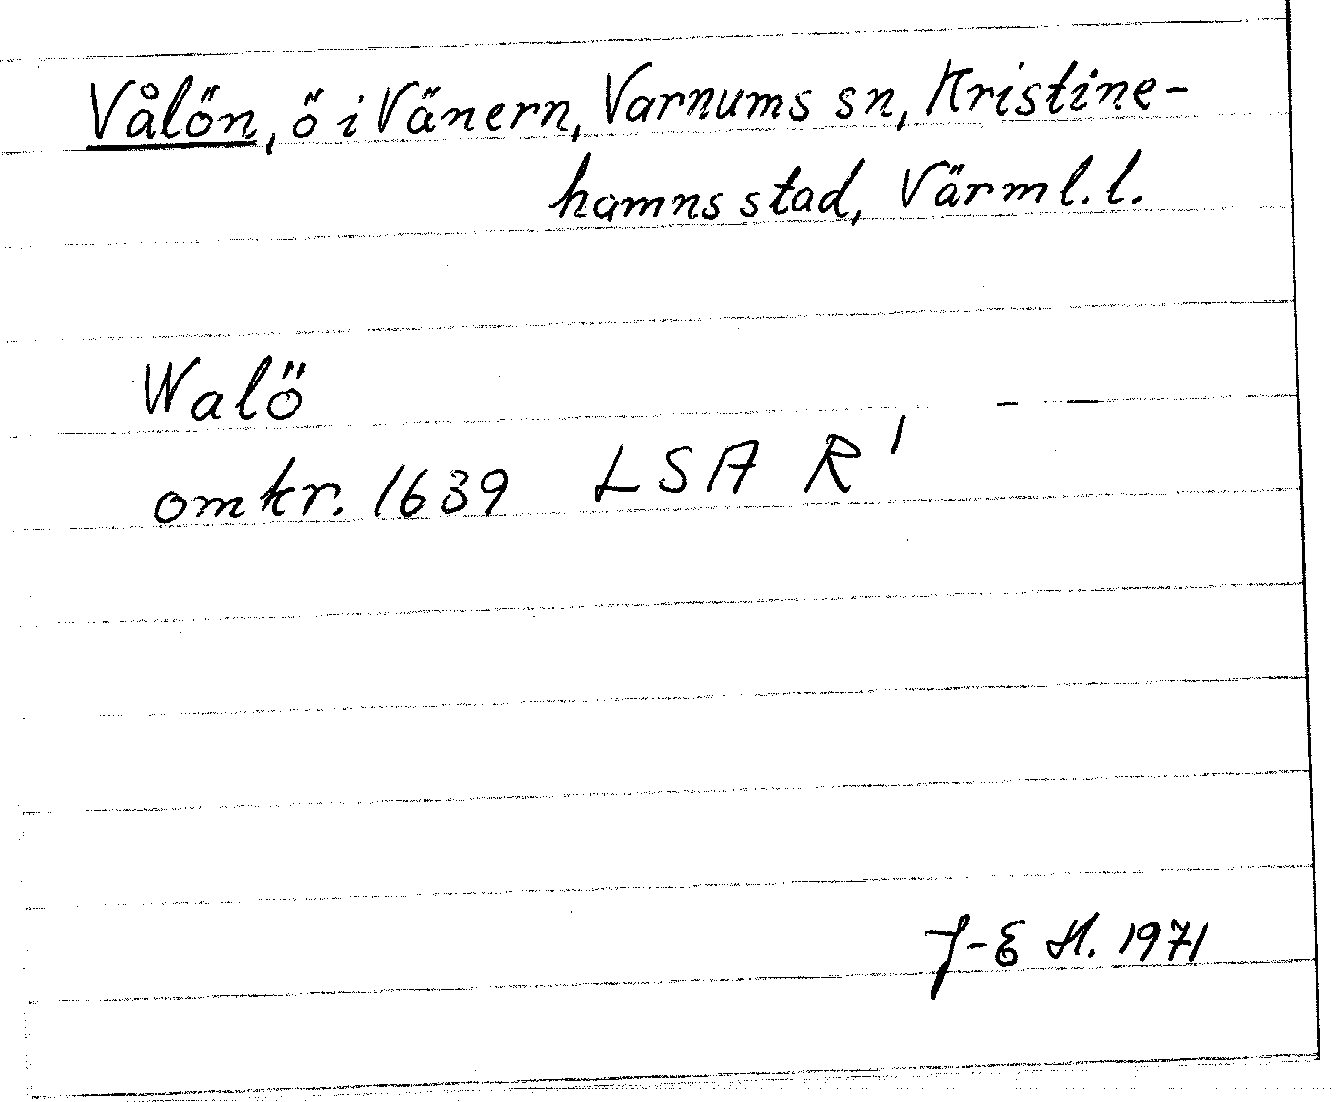 Vålön, ö i Vänern, Varnums sn, Kristine-
hamns stad, Värml. l.
Walö
omkr. 1639 LSA R 1
J-E H. 1971